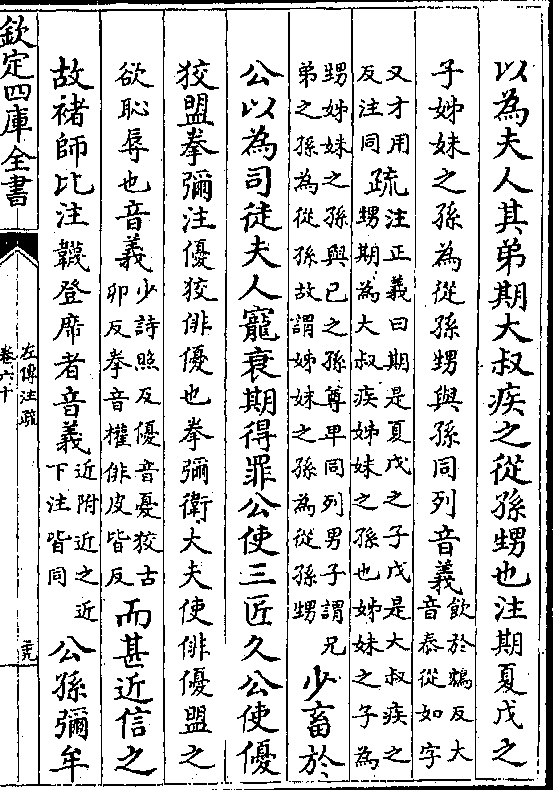 以為夫人其弟期大叔疾之從孫甥也注期夏戊之
子姊妹之孫為從孫甥與孫同列音義飲於鴆反大
音泰從如字
又才用
反注同疏注正義曰期是夏戊之子戊是大叔疾之
甥期為大叔疾姊妹之孫也姊妹之子為
甥姊妹之孫與已之孫尊卑同列男子謂兄
弟之孫為從孫故謂姊妹之孫為從孫甥少畜於
公以為司徒夫人寵衰期得罪公使三匠久公使優
狡盟拳彌注優狡俳優也拳彌衛大夫使俳優盟之
欲恥辱也音義少詩照反優音憂狡古
卯反拳音權俳皮皆反而甚近信之
故褚師比注韈登席者音義近附近之近
下注皆同公孫彌牟
欽定四庫全書
左傳注疏
卷六十